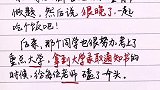 做题，然后说很晚了，一起
吃个饭吧！
后来，那个同学也很努力考上了
重点大学。拿到大学录取通知书的
时候，给每位老师磕了一个头。